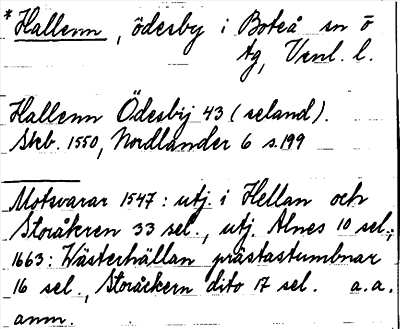 * Hallenn, ödesby i Boteå sn o
Åg, Vrnl. l.
Hallenn Ödesbij 43 (seland).
Skb. 1550, Nordlander 6 s.199
Motsvarar 1547: utj. i Hellan och
Storåkren 33 sel., utj. Alnes 10 sel.;
1663: Wästerhällan prästastumbnar
16 sel., Storåckern dito 17 sel. a.a.
anm.